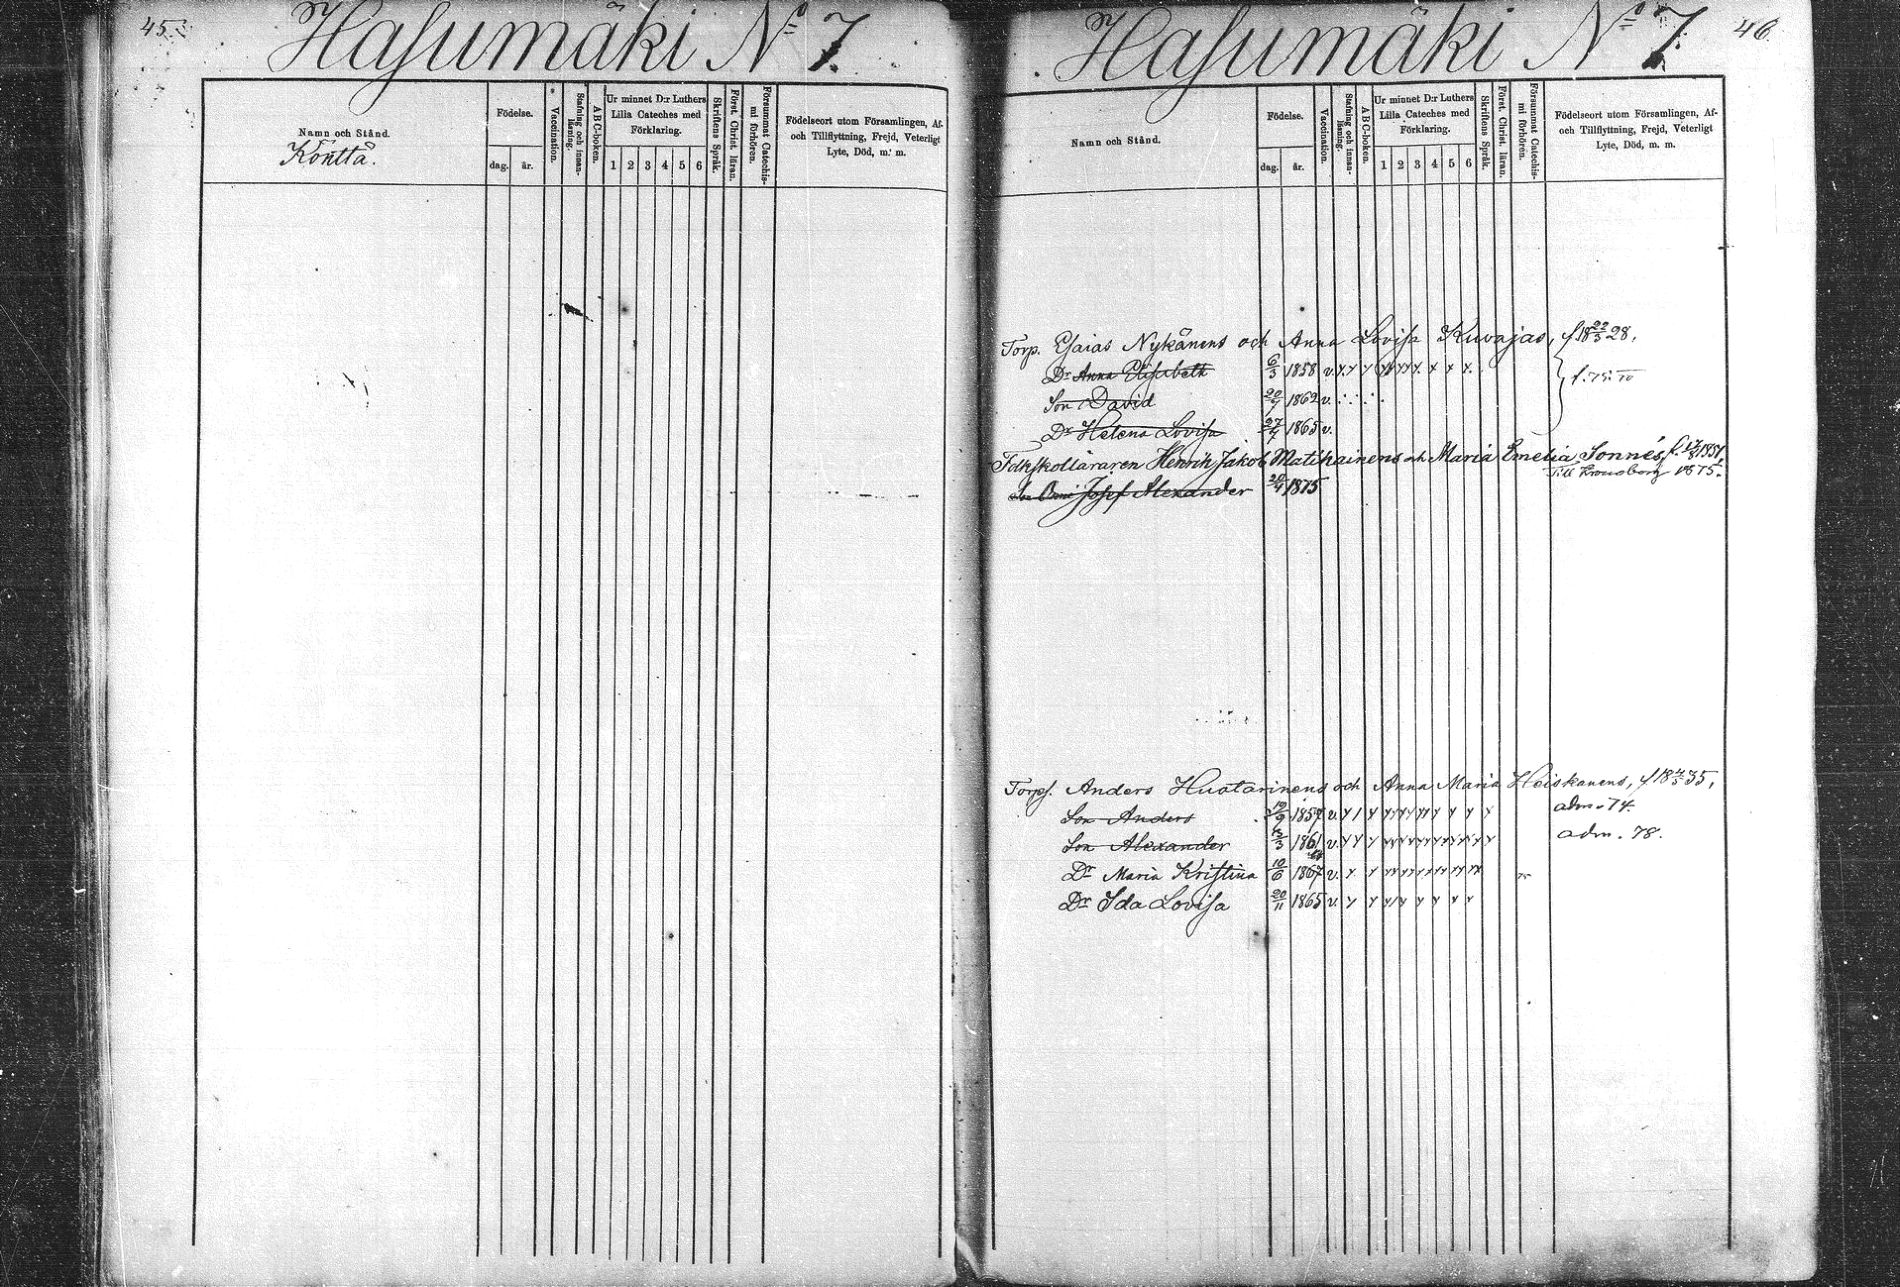 45.
Hasumäki No 7.
Namn och Stånd.
Könttä.
Födelse.
dag. år.
Vaccination.
Stafning och innanläsning.
A B C-boken.
Ur minnet D:r Luthers Lilla Cateches med Förklaring.
1 2 3 4 5 6
Skriftens Språk.
Först. Christ. läran.
Försummat Catechismi förhören.
Födelseort utom Församlingen, Af- och Tillflyttning, Frejd, Veterligt Lyte, Död, m. m.
46.
Hasumäki No 7.
Namn och Stånd.
Födelse.
dag. år.
Vaccination.
Stafning och innanläsning.
A B C-boken.
Ur minnet D:r Luthers Lilla Cateches med Förklaring.
1 2 3 4 5 6
Skriftens Språk.
Först. Christ. läran.
Försummat Catechismi förhören.
Födelseort utom Församlingen, Af- och Tillflyttning, Frejd, Veterligt Lyte, Död, m. m.
Torp. Esaias Nykänens och Anna Lovisa Kuvajas, f. 18 22/5 28.
Dr Anna Elisabeth 6/3 1858 v.
Son David 20/7 1862 v.
Dr Helena Lovisa 27/7 1865 v.
Folkskolläraren Henrik Jakob Matikainens och Maria Emelia Sonnés f. 1851
Till Kronoborg 1875.
Josef Alexander 20/4 1875
Torp. Anders Huotarinens och Anna Maria Heiskanens, f. 18 35,
Son Anders 19/9 1857 v. adm. 74.
Son Alexander 13/3 1861 v. adm. 78.
Dr Maria Kristina 10/6 1867 v.
Dr Ida Lovisa 20/11 1865 v.